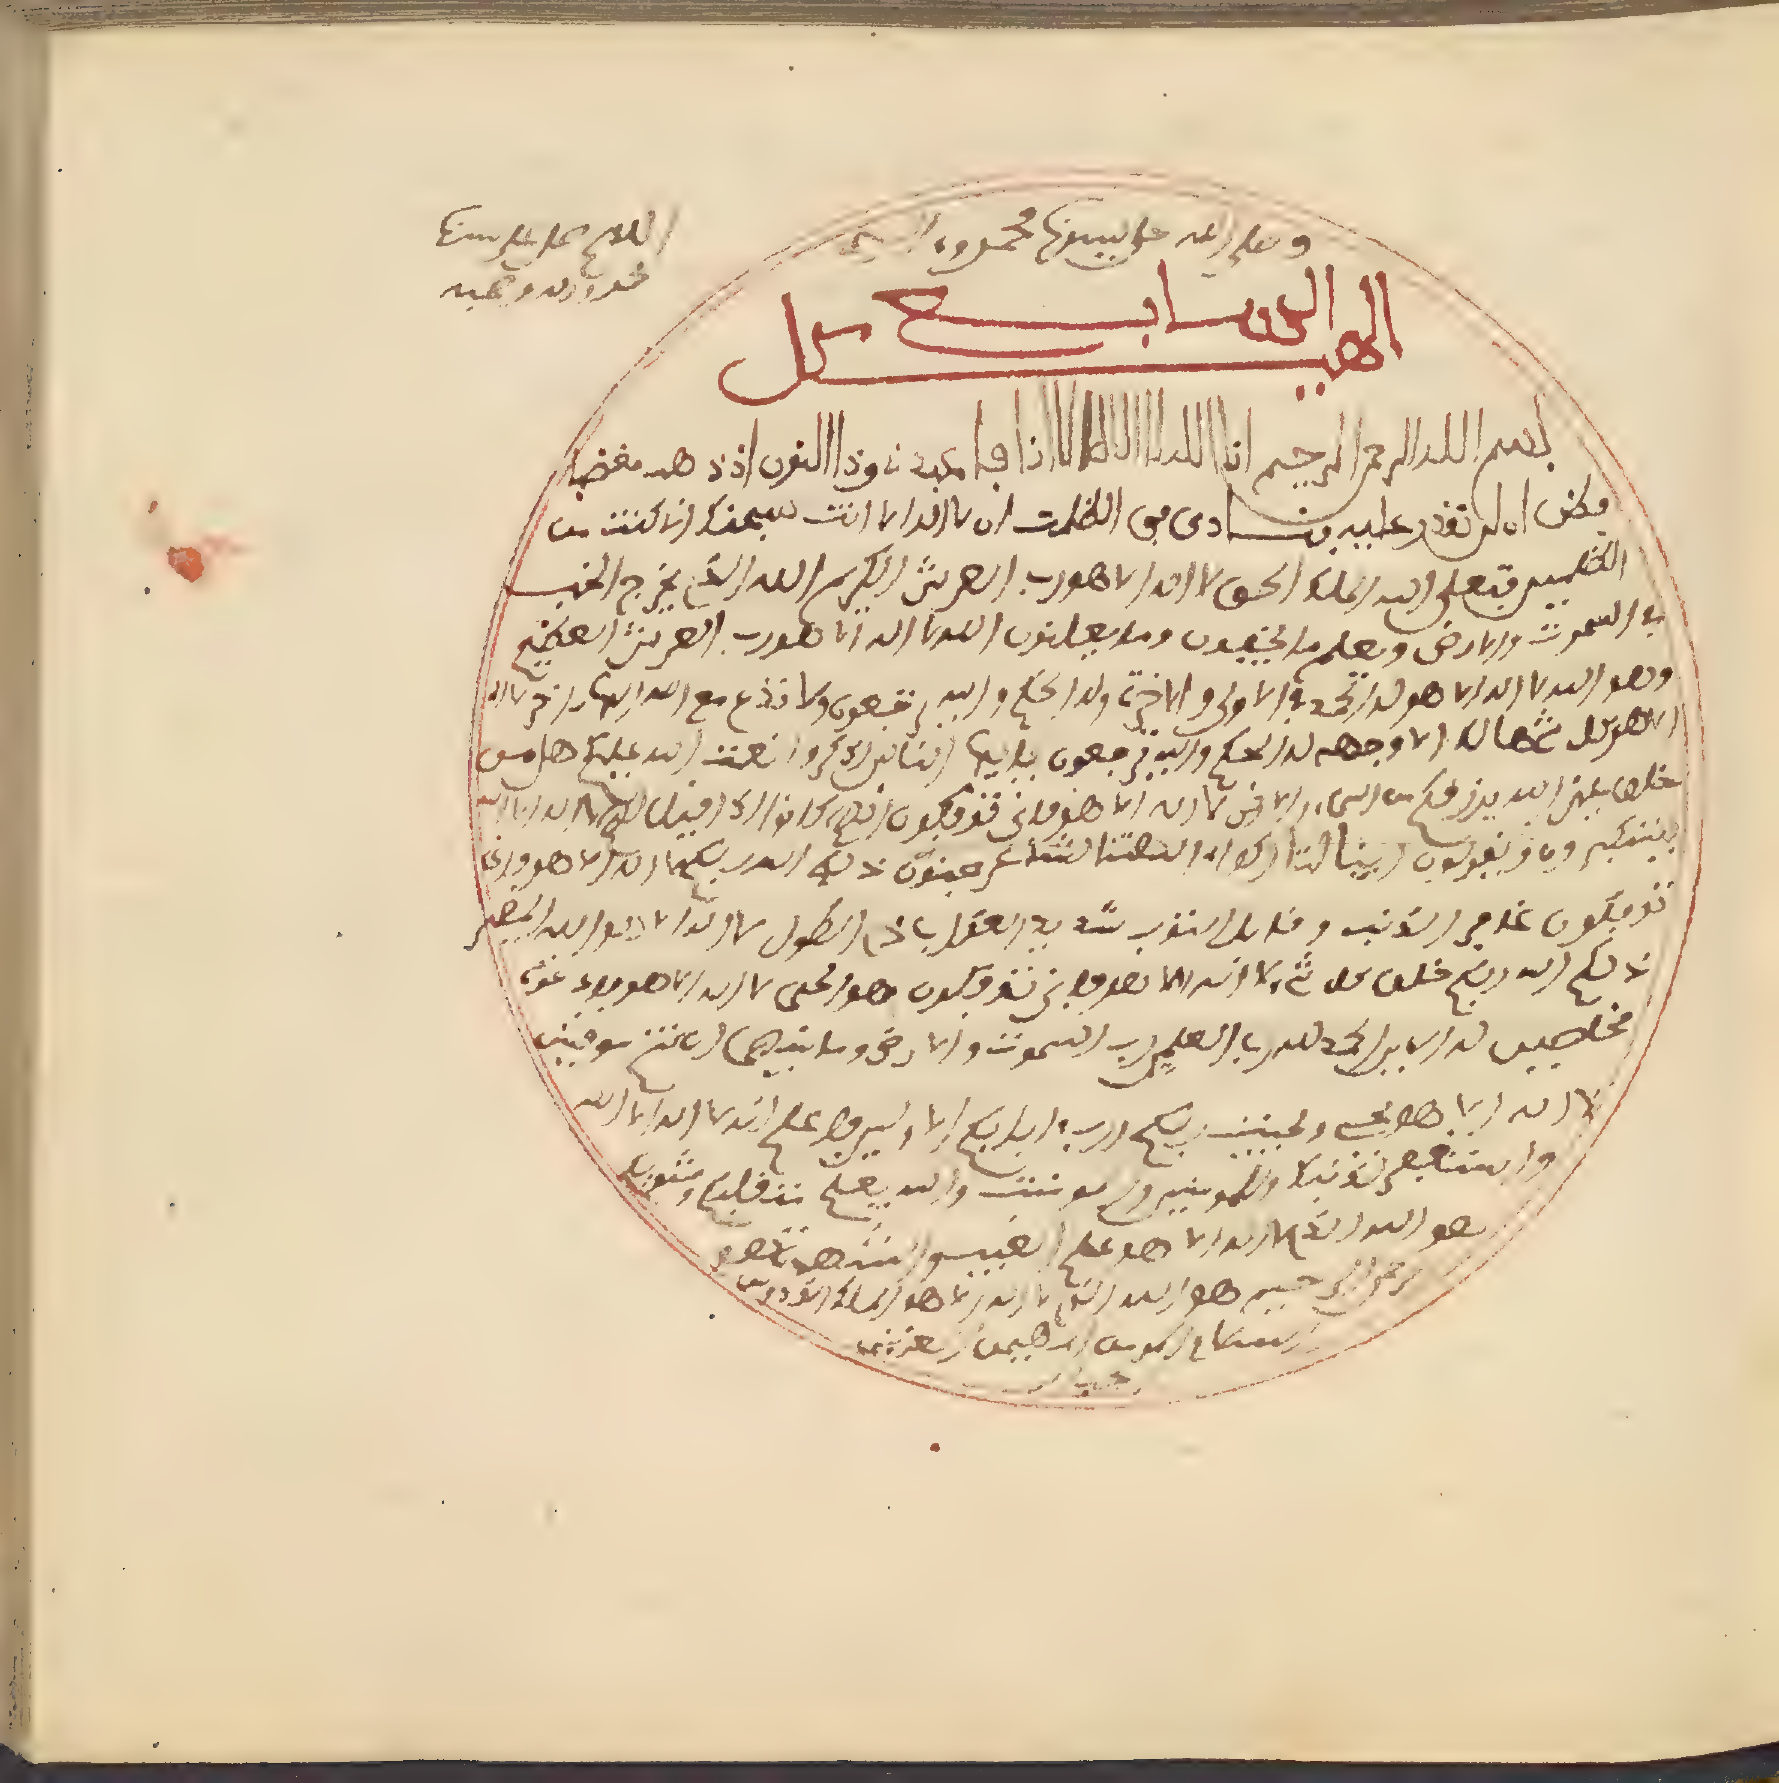 اللهم صل على سيدنا
محمد واله وصحبه
وصلى الله على نبينا محمد واله
الهيكل السابع
بسم الله الرحمن الرحيم انا الله لا اله الا انا فاعبدني وذا النون اذ ذهب مغضبا
فظن ان لن نقدر عليه فنادى في الظلمت ان لا اله الا انت سبحنك اني كنت من
الظلمين فتعلى الله الملك الحق لا اله الا هو رب العرش الكريم الله الذي يخرج الخب
في السموت والارض ويعلم ما يخفون وما يعلنون الله لا اله الا هو رب العرش العظيم
وهو الله لا اله الا هو له الحمد في الاولى والاخرة وله الحكم واليه ترجعون ولا تدع مع الله الها اخر لا اله
الا هو كل شي هالك الا وجهه له الحكم واليه ترجعون يايها الناس اذكروا نعمت الله عليكم هل من
خلق غير الله يرزقكم من السما والارض لا اله الا هو فاني توفكون انهم كانوا اذا قيل لهم لا اله الا الله
يستكبرون ويقولون اينا لتاركوا الهتنا لشاعر مجنون ذلكم الله ربكم لا اله الا هو فاني
توفكون غافر الذنب وقابل التوب شديد العقاب ذي الطول لا اله الا هو اليه المصير
ذلكم الله ربكم خلق كل شي لا اله الا هو فاني توفكون هو الحي لا اله الا هو فادعوه
مخلصين له الدين الحمد لله رب العلمين رب السموت والارض وما بينهما ان كنتم موقنين
لا اله الا هو يحي ويميت ربكم ورب ابايكم الاولين فاعلم انه لا اله الا الله
واستغفر لذنبك وللمومنين والمومنت والله يعلم متقلبكم ومثويكم
هو الله الذي لا اله الا هو علم الغيب والشهدة هو
الرحمن الرحيم هو الله الذي لا اله الا هو الملك القدوس
السلام المومن المهيمن العزيز
الجبار